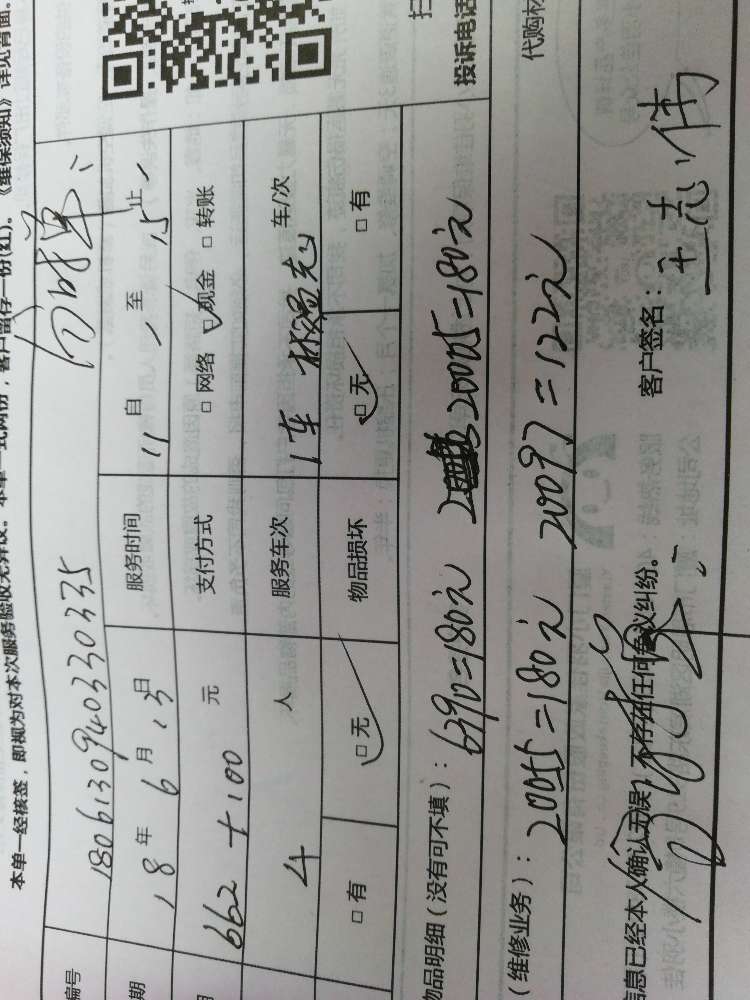 本单一经核签，即视为对本次服务验收无异议。本单一式两份，客户留存一份(红)。《维保须知》详见背面。
编号 180613094033033​5
期 18 年 6 月 13 日 服务时间 11 自 至 15 止
662 + 100 元 支付方式 □ 网络 □ 现金 □ 转账
4 人 服务车次 1车 车/次
□ 有 □ 无 物品损坏 □ 无 □ 有
扫
投诉电话
物品明细（没有可不填）： 6390=180元 20055=180元
代购材
（维修业务）： 20055=180元 20097=122元
信息已经本人确认无误，不存在任何争议纠纷。 客户签名： 王志伟